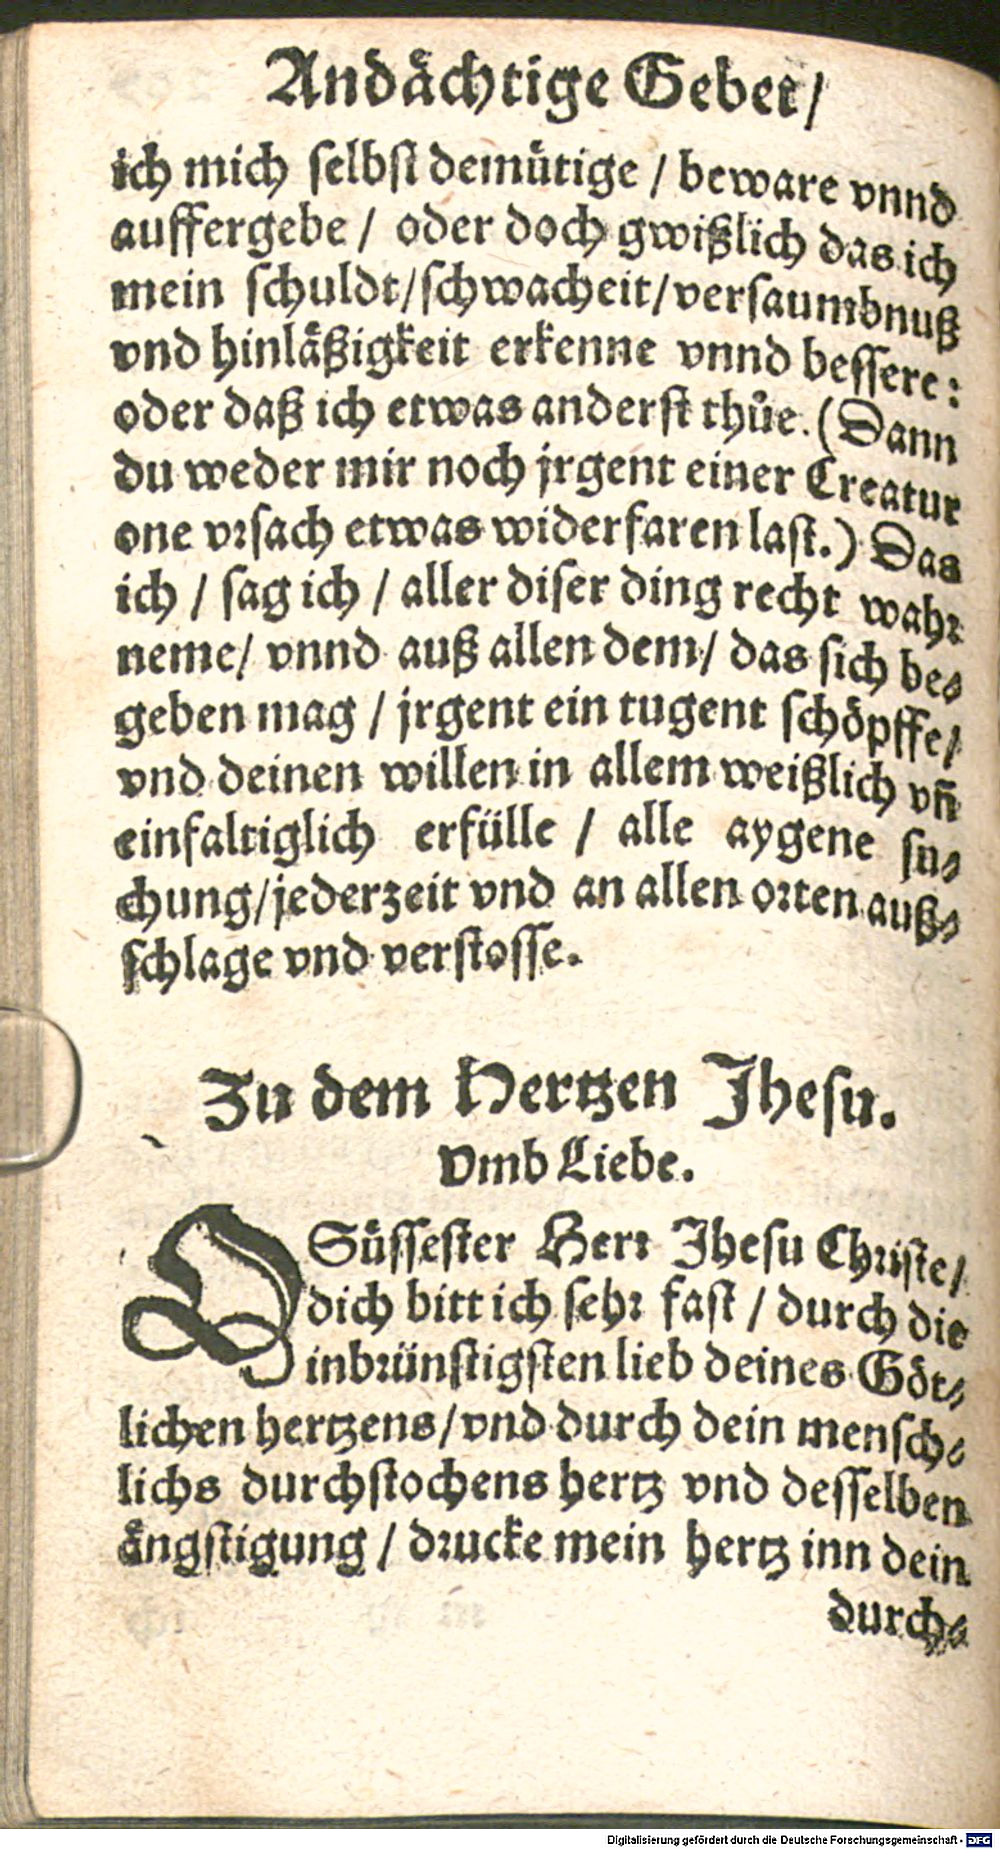 Andaͤchtige Gebet/
ich mich selbst demuͤtige / beware vnnd
auffergebe / oder doch gwißlich das ich
mein schuldt/schwacheit/versaumbnuß
vnd hinlaͤßigkeit erkenne vnnd bessere:
oder daß ich etwas anderst thuͤe. (Dann
du weder mir noch jrgent einer Creatur
one vrsach etwas widerfaren last.) Das
ich / sag ich / aller diser ding recht wahr
neme/ vnnd auß allen dem/ das sich be⸗
geben mag / jrgent ein tugent schoͤpffe/
vnd deinen willen in allem weißlich vn̄
einfaltiglich erfuͤlle / alle aygene su⸗
chung/jederzeit vnd an allen orten auß⸗
schlage vnd verstosse.
Zu dem Hertzen Jhesu.
Vmb Liebe.
O Suͤssester Herr Jhesu Christe/
dich bitt ich sehr fast / durch die
inbruͤnstigsten lieb deines Goͤt⸗
lichen hertzens/vnd durch dein mensch⸗
lichs durchstochens hertz vnd desselben
aͤngstigung / drucke mein hertz inn dein
durch⸗
Digitalisierung gefördert durch die Deutsche Forschungsgemeinschaft - DFG